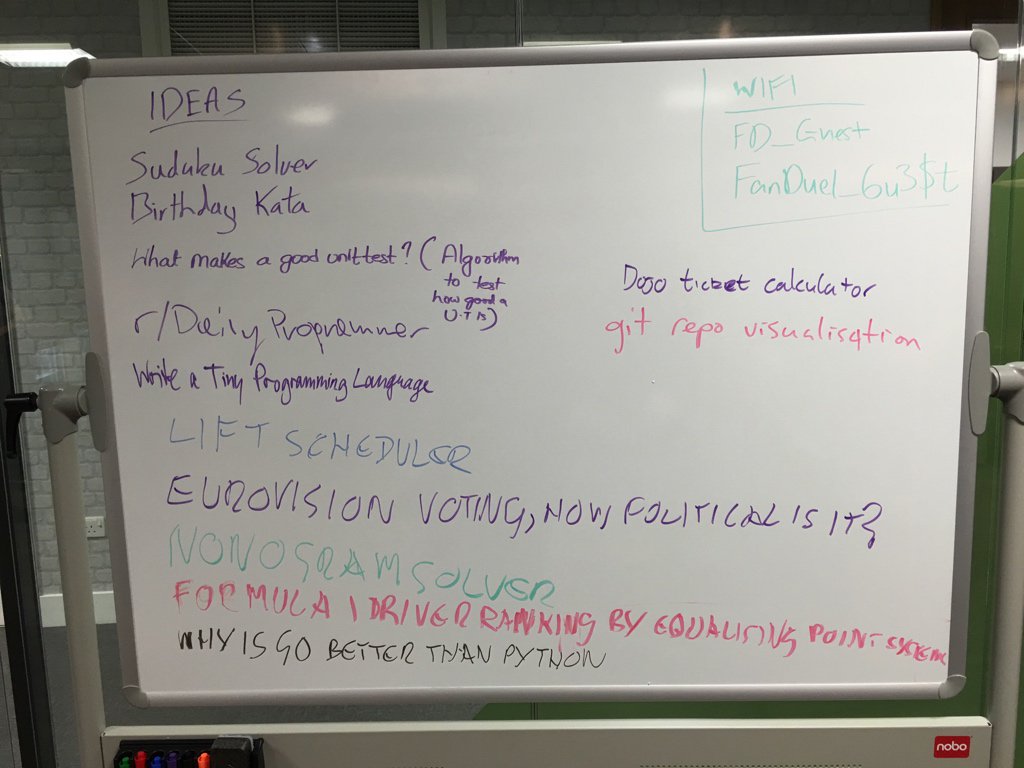 IDEAS
Suduku Solver
Birthday Kata
What makes a good unit test? (Algorithm
to test
how good a
U.T is)
r/Daily Programmer
Write a Tiny Programming Language
LIFT SCHEDULER
EUROVISION VOTING, HOW POLITICAL IS IT?
NONOGRAM SOLVER
FORMULA 1 DRIVER RANKING BY EQUALISING POINT SYSTEM
WHY IS GO BETTER THAN PYTHON
WIFI
FD_Guest
FanDuel_6u3$t
Dojo ticket calculator
git repo visualisation
nobo